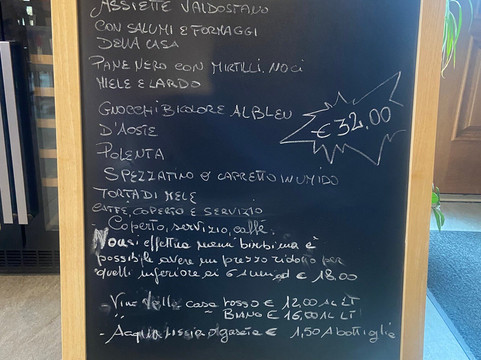 ASSIETTE VALDOSTANO
CON SALUMI E FORMAGGI
DELLA CASA
PANE NERO CON MIRTILLI, NOCI
MIELE E LARDO
GNOCCHI BICOLORE AL BLEU
D'AOSTE
€ 32,00
POLENTA
SPEZZATINO O CAPRETTO IN UMIDO
TORTA DI MELE
CAFFE, COPERTO E SERVIZIO
- Coperto, servizio, caffè.
Non si effettua menù bimbi ma è
possibile avere un prezzo ridotto per
quelli inferiore ai 6 € 18,00
- Vino della casa rosso € 12,00 al LT
" BIANCO € 16,00 al LT
- Acqua liscia o gasata € 1,50 A bottiglia